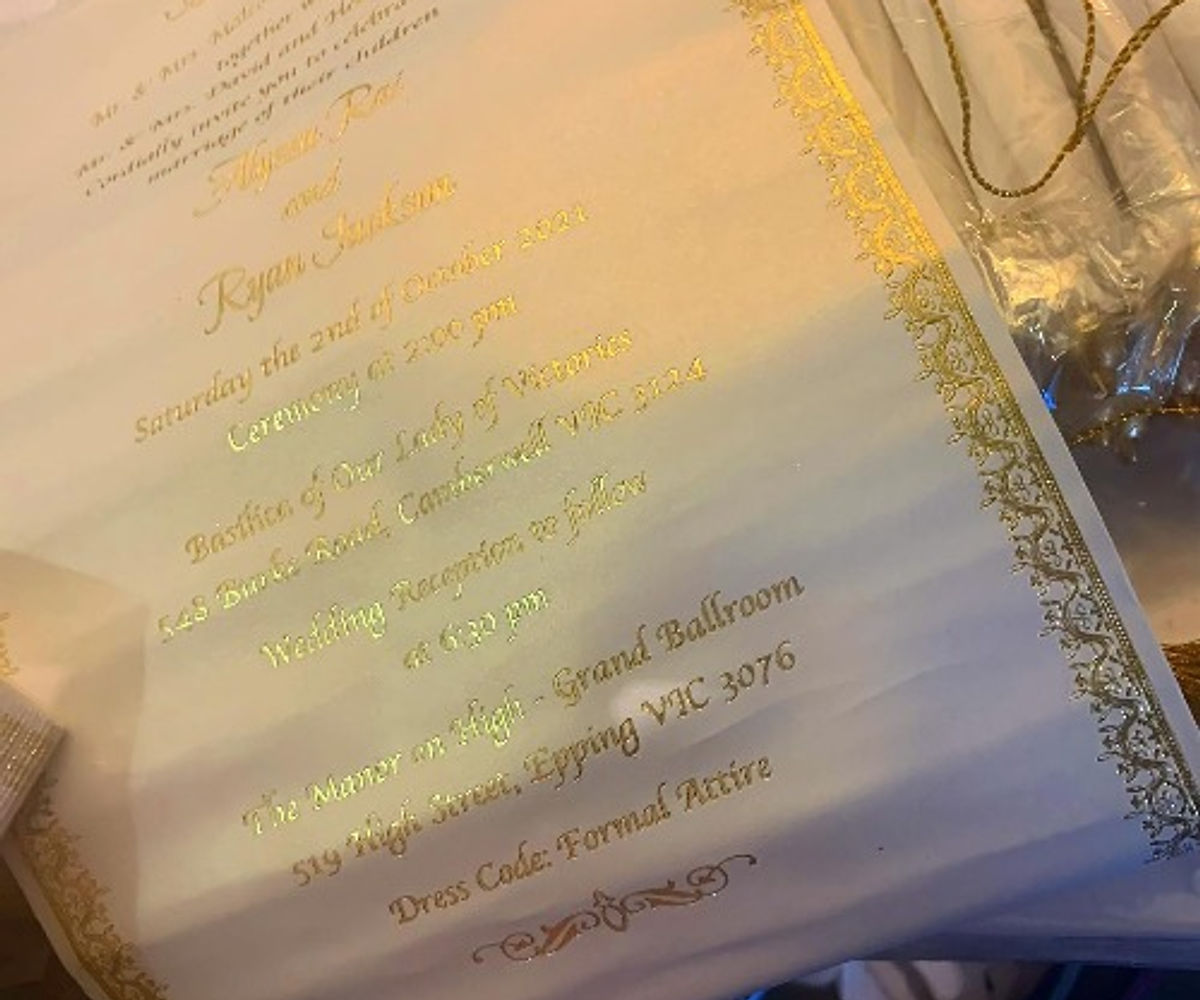 Mr. & Mrs.
together
Mr. & Mrs. David and
Cordially invite you to celebrate
marriage of their children
Alyssa Rai
and
Ryan Jackson
Saturday the 2nd of October 2021
Ceremony at 2:00 pm
Basilica of Our Lady of Victories
548 Burke Road, Camberwell VIC 3124
Wedding Reception to follow
at 6:30 pm
The Manor on High - Grand Ballroom
519 High Street, Epping VIC 3076
Dress Code: Formal Attire